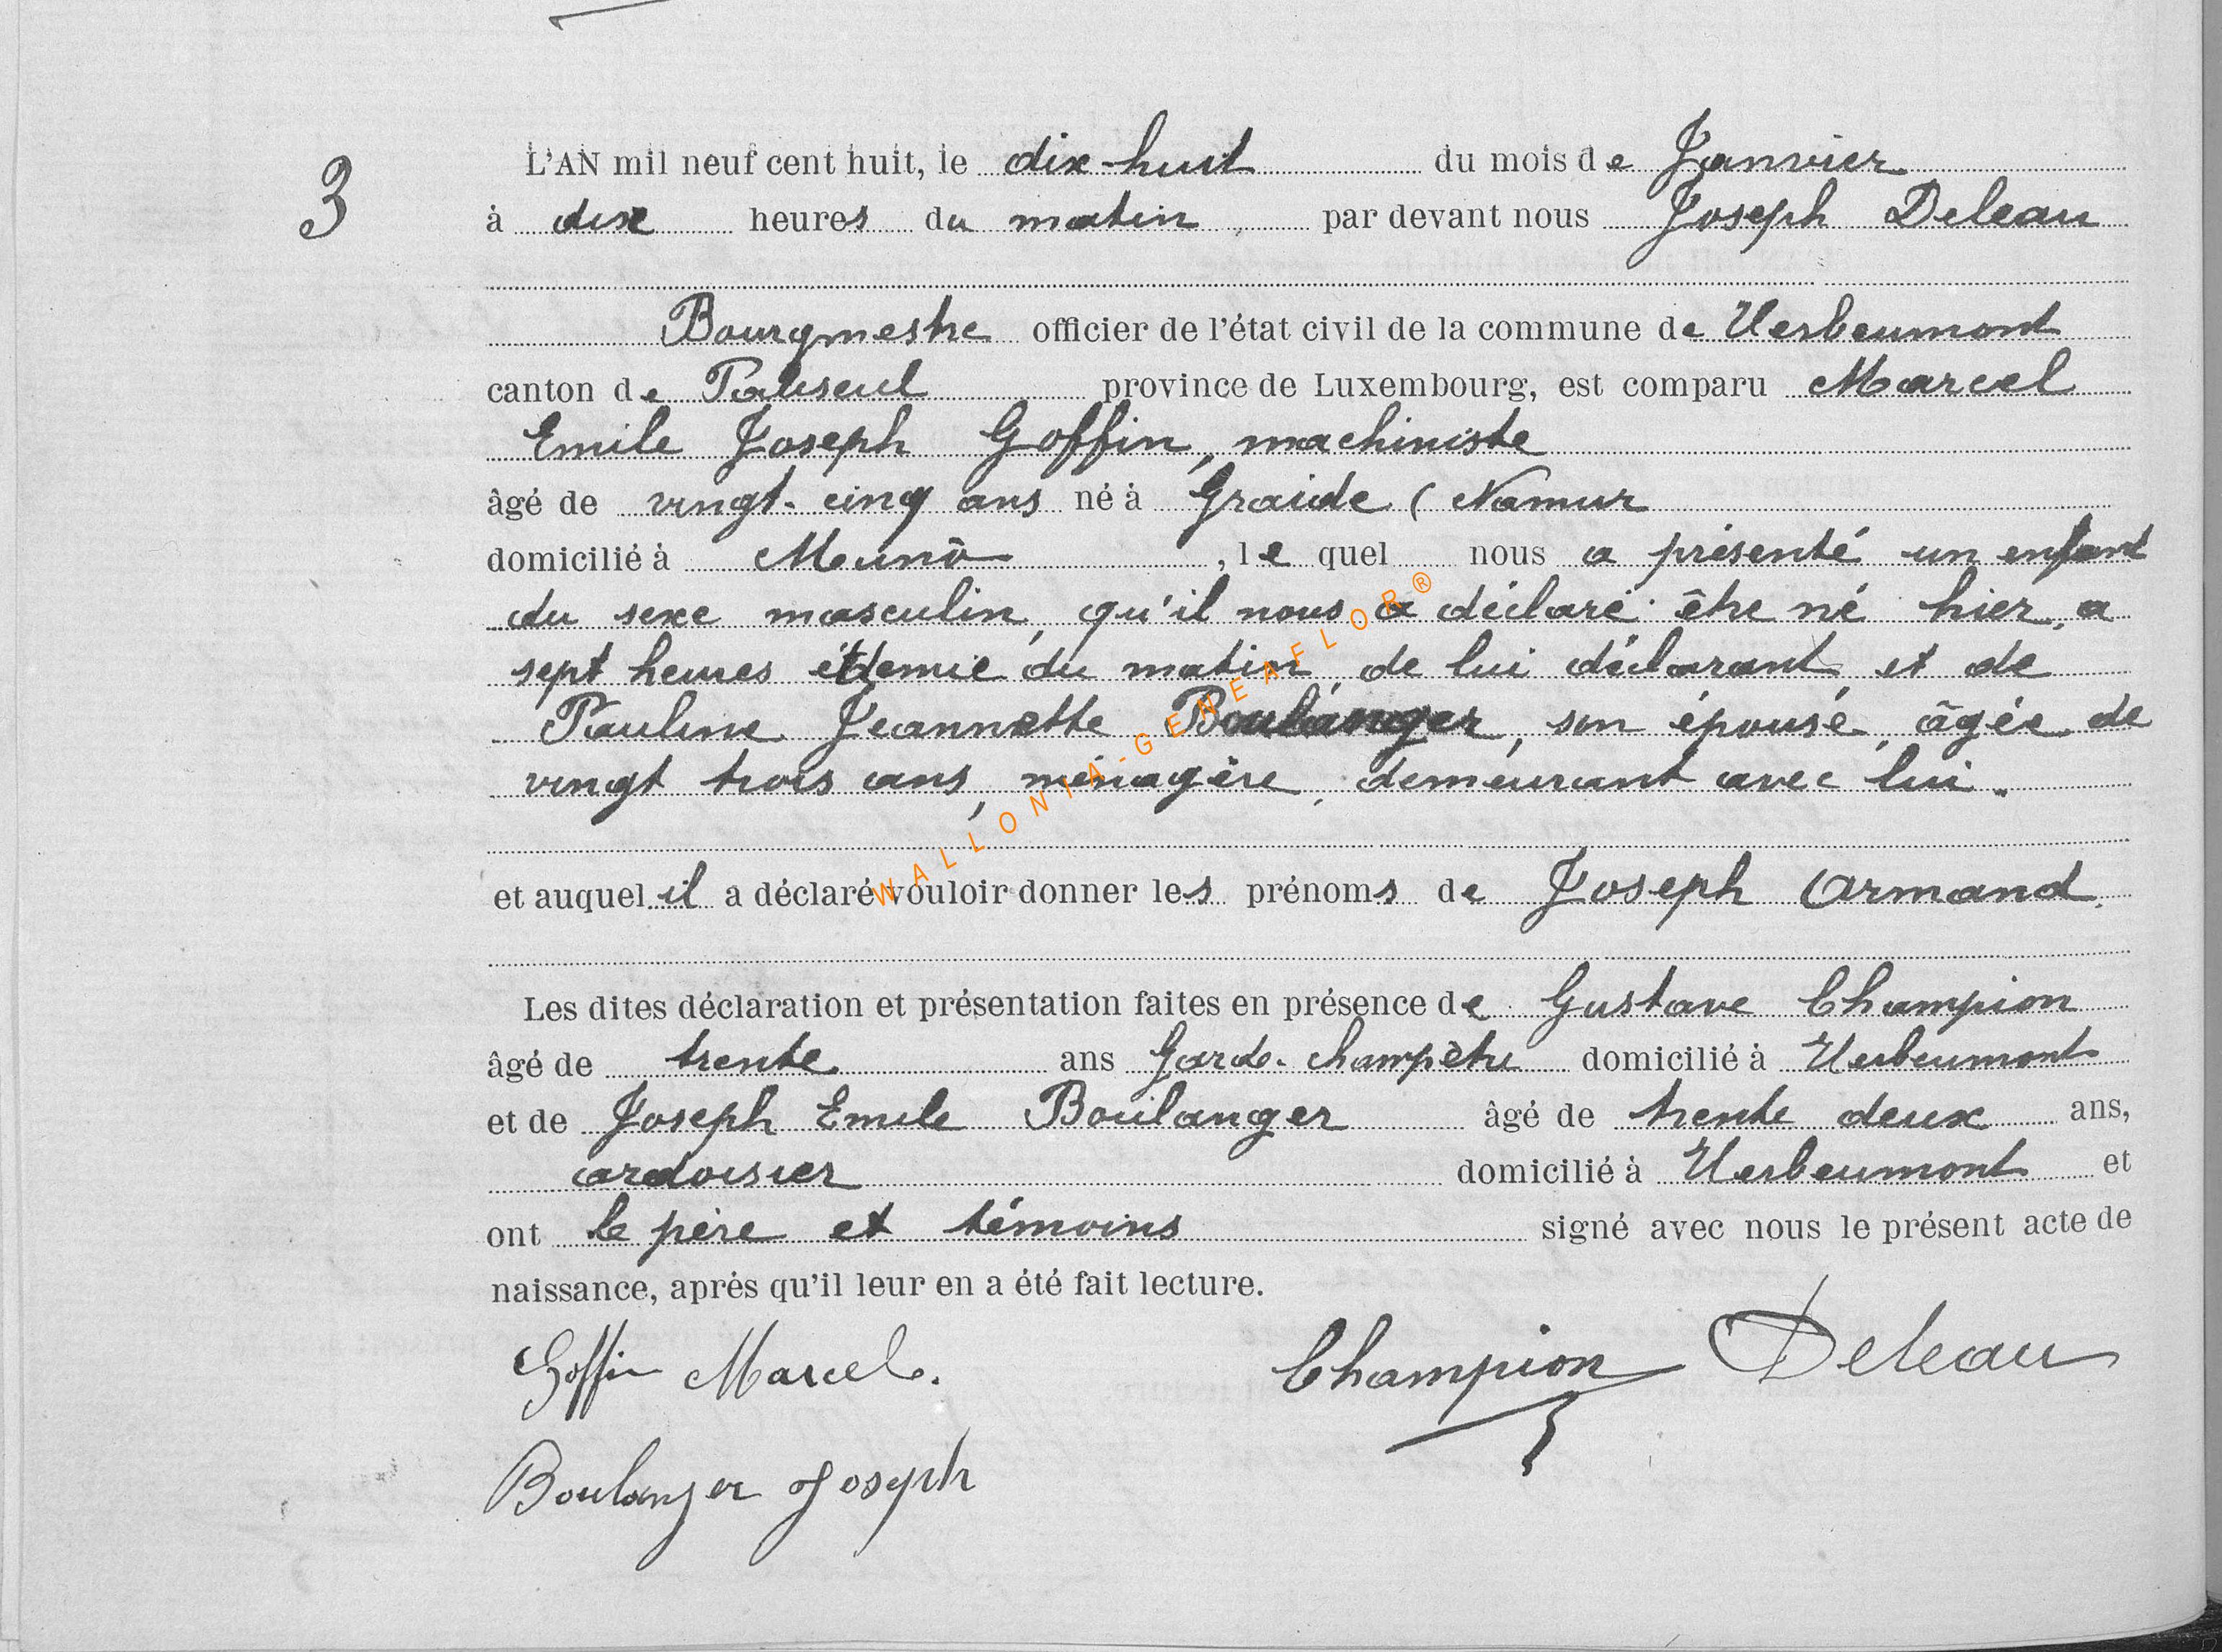 3
L'AN mil neuf cent huit, le dix-huit du mois de Janvier
à dix heures du matin par devant nous Joseph Deleau
Bourgmestre officier de l'état civil de la commune de Herbeumont
canton de Paliseul province de Luxembourg, est comparu Marcel
Emile Joseph Goffin, machiniste
âgé de vingt-cinq ans né à Graide ( Namur
domicilié à Muno, le quel nous a présenté un enfant
du sexe masculin, qu'il nous a déclaré être né hier, a
sept heures et demie du matin, de lui déclarant et de
Pauline Jeannette Boulanger, son épouse, âgée de
vingt trois ans, ménagère, demeurant avec lui.
et auquel il a déclaré vouloir donner les prénoms de Joseph Armand.
Les dites déclaration et présentation faites en présence de Gustave Champion
âgé de trente ans Garde-champêtre domicilié à Herbeumont
et de Joseph Emile Boulanger âgé de trente deux ans,
ardoisier domicilié à Herbeumont et
ont le père et témoins signé avec nous le présent acte de
naissance, après qu'il leur en a été fait lecture.
Goffin Marcel. Champion Deleau
Boulanger Joseph
WALLONIA-GENEAFLOR®